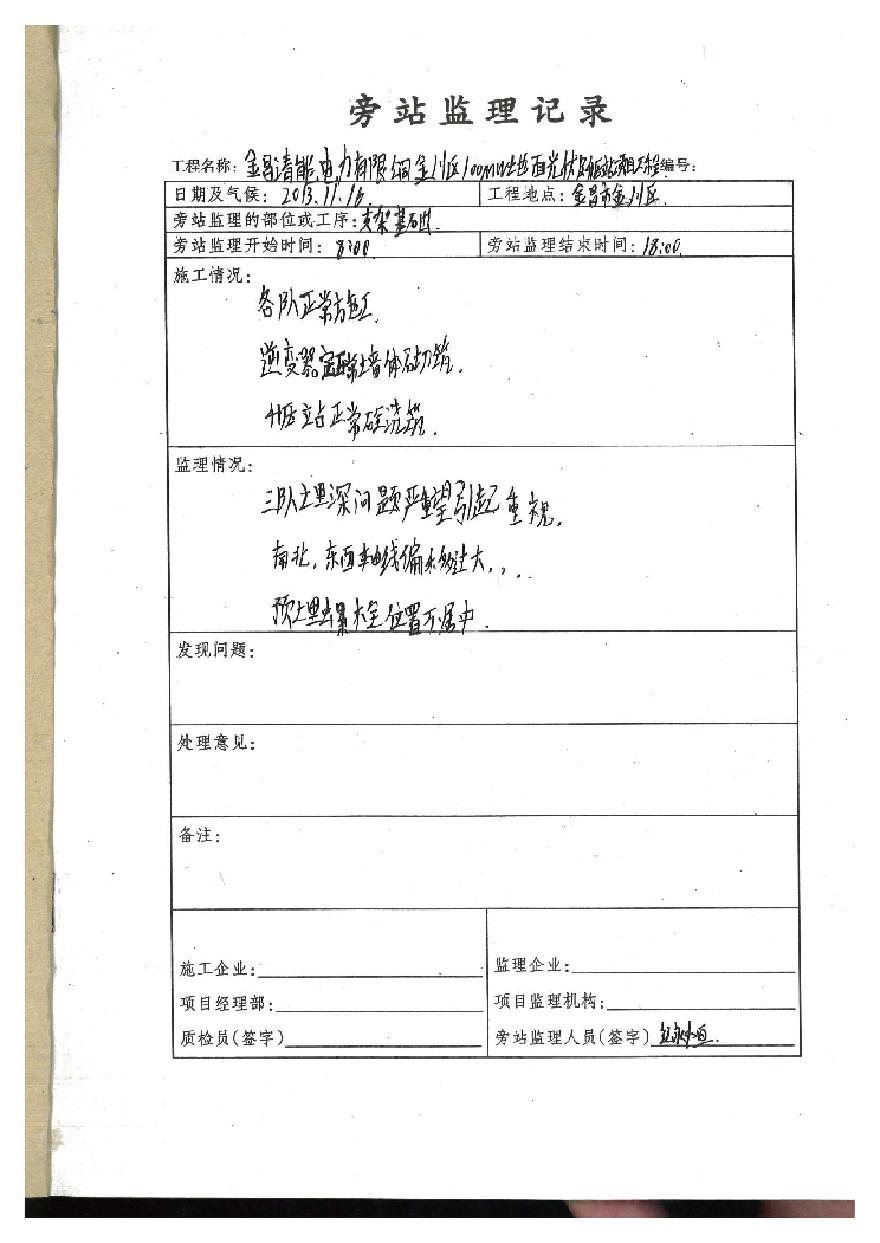 旁站监理记录
工程名称：金昌清能电力有限公司金川区100MW光伏项目工程编号：
日期及气候：2013.11.16 工程地点：金昌市金川区.
旁站监理的部位或工序：支架基础.
旁站监理开始时间：8:00 旁站监理结束时间：18:00.
施工情况：
各队正常施工.
逆变器室正常墙体砌筑.
升压站正常砼浇筑.
监理情况：
三队埋深问题严重望引起重视.
南北,东西轴线偏太大
预埋位置不居中.
发现问题：
处理意见：
备注：
施工企业： 监理企业：
项目经理部： 项目监理机构：
质检员(签字) 旁站监理人员(签字)